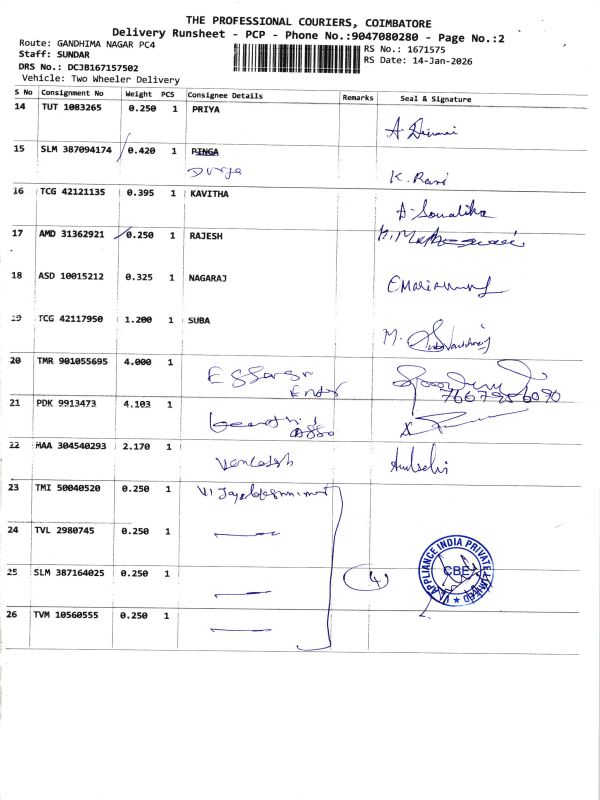 THE PROFESSIONAL COURIERS, COIMBATORE
Delivery Runsheet - PCP - Phone No.:9047080280 - Page No.:2
Route: GANDHIMA NAGAR PC4
Staff: SUNDAR
DRS No.: DCJB167157502
Vehicle: Two Wheeler Delivery
RS No.: 1671575
RS Date: 14-Jan-2026
S No Consignment No Weight PCS Consignee Details Remarks Seal & Signature
14 TUT 1083265 0.250 1 PRIYA
15 SLM 387094174 0.420 1 PINGA
Durga
K. Rani
16 TCG 42121135 0.395 1 KAVITHA
17 AMD 31362921 0.250 1 RAJESH
18 ASD 10015212 0.325 1 NAGARAJ
19 TCG 42117950 1.200 1 SUBA
M.
20 TMR 901055695 4.000 1
21 PDK 9913473 4.103 1
22 MAA 304540293 2.170 1 Venkatesh
23 TMI 50040520 0.250 1
24 TVL 2980745 0.250 1
25 SLM 387164025 0.250 1 4
26 TVM 10560555 0.250 1
APPLIANCE INDIA PRIVATE LIMITED
CBE